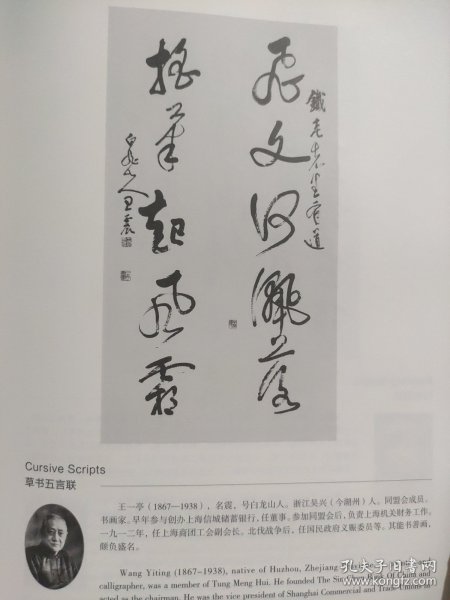 飛文何灑落
鐵老
搖筆起風霜
白龍山人王震
Cursive Scripts
草书五言联
王一亭（1867—1938），名震，号白龙山人。浙江吴兴（今湖州）人。同盟会成员，
书画家。早年参与创办上海信城储蓄银行，任董事。参加同盟会后，负责上海机关财务工作。
一九一二年，任上海商团工会副会长。北伐战争后，任国民政府义赈委员等。其能书善画，
颇负盛名。
Wang Yiting (1867-1938), native of Huzhou, Zhejiang
calligrapher, was a member of Tung Meng Hui. He founded The China and
acted as the chairman. He was the vice president of Shanghai Commercial and Trade Unions in
孔夫子旧书网